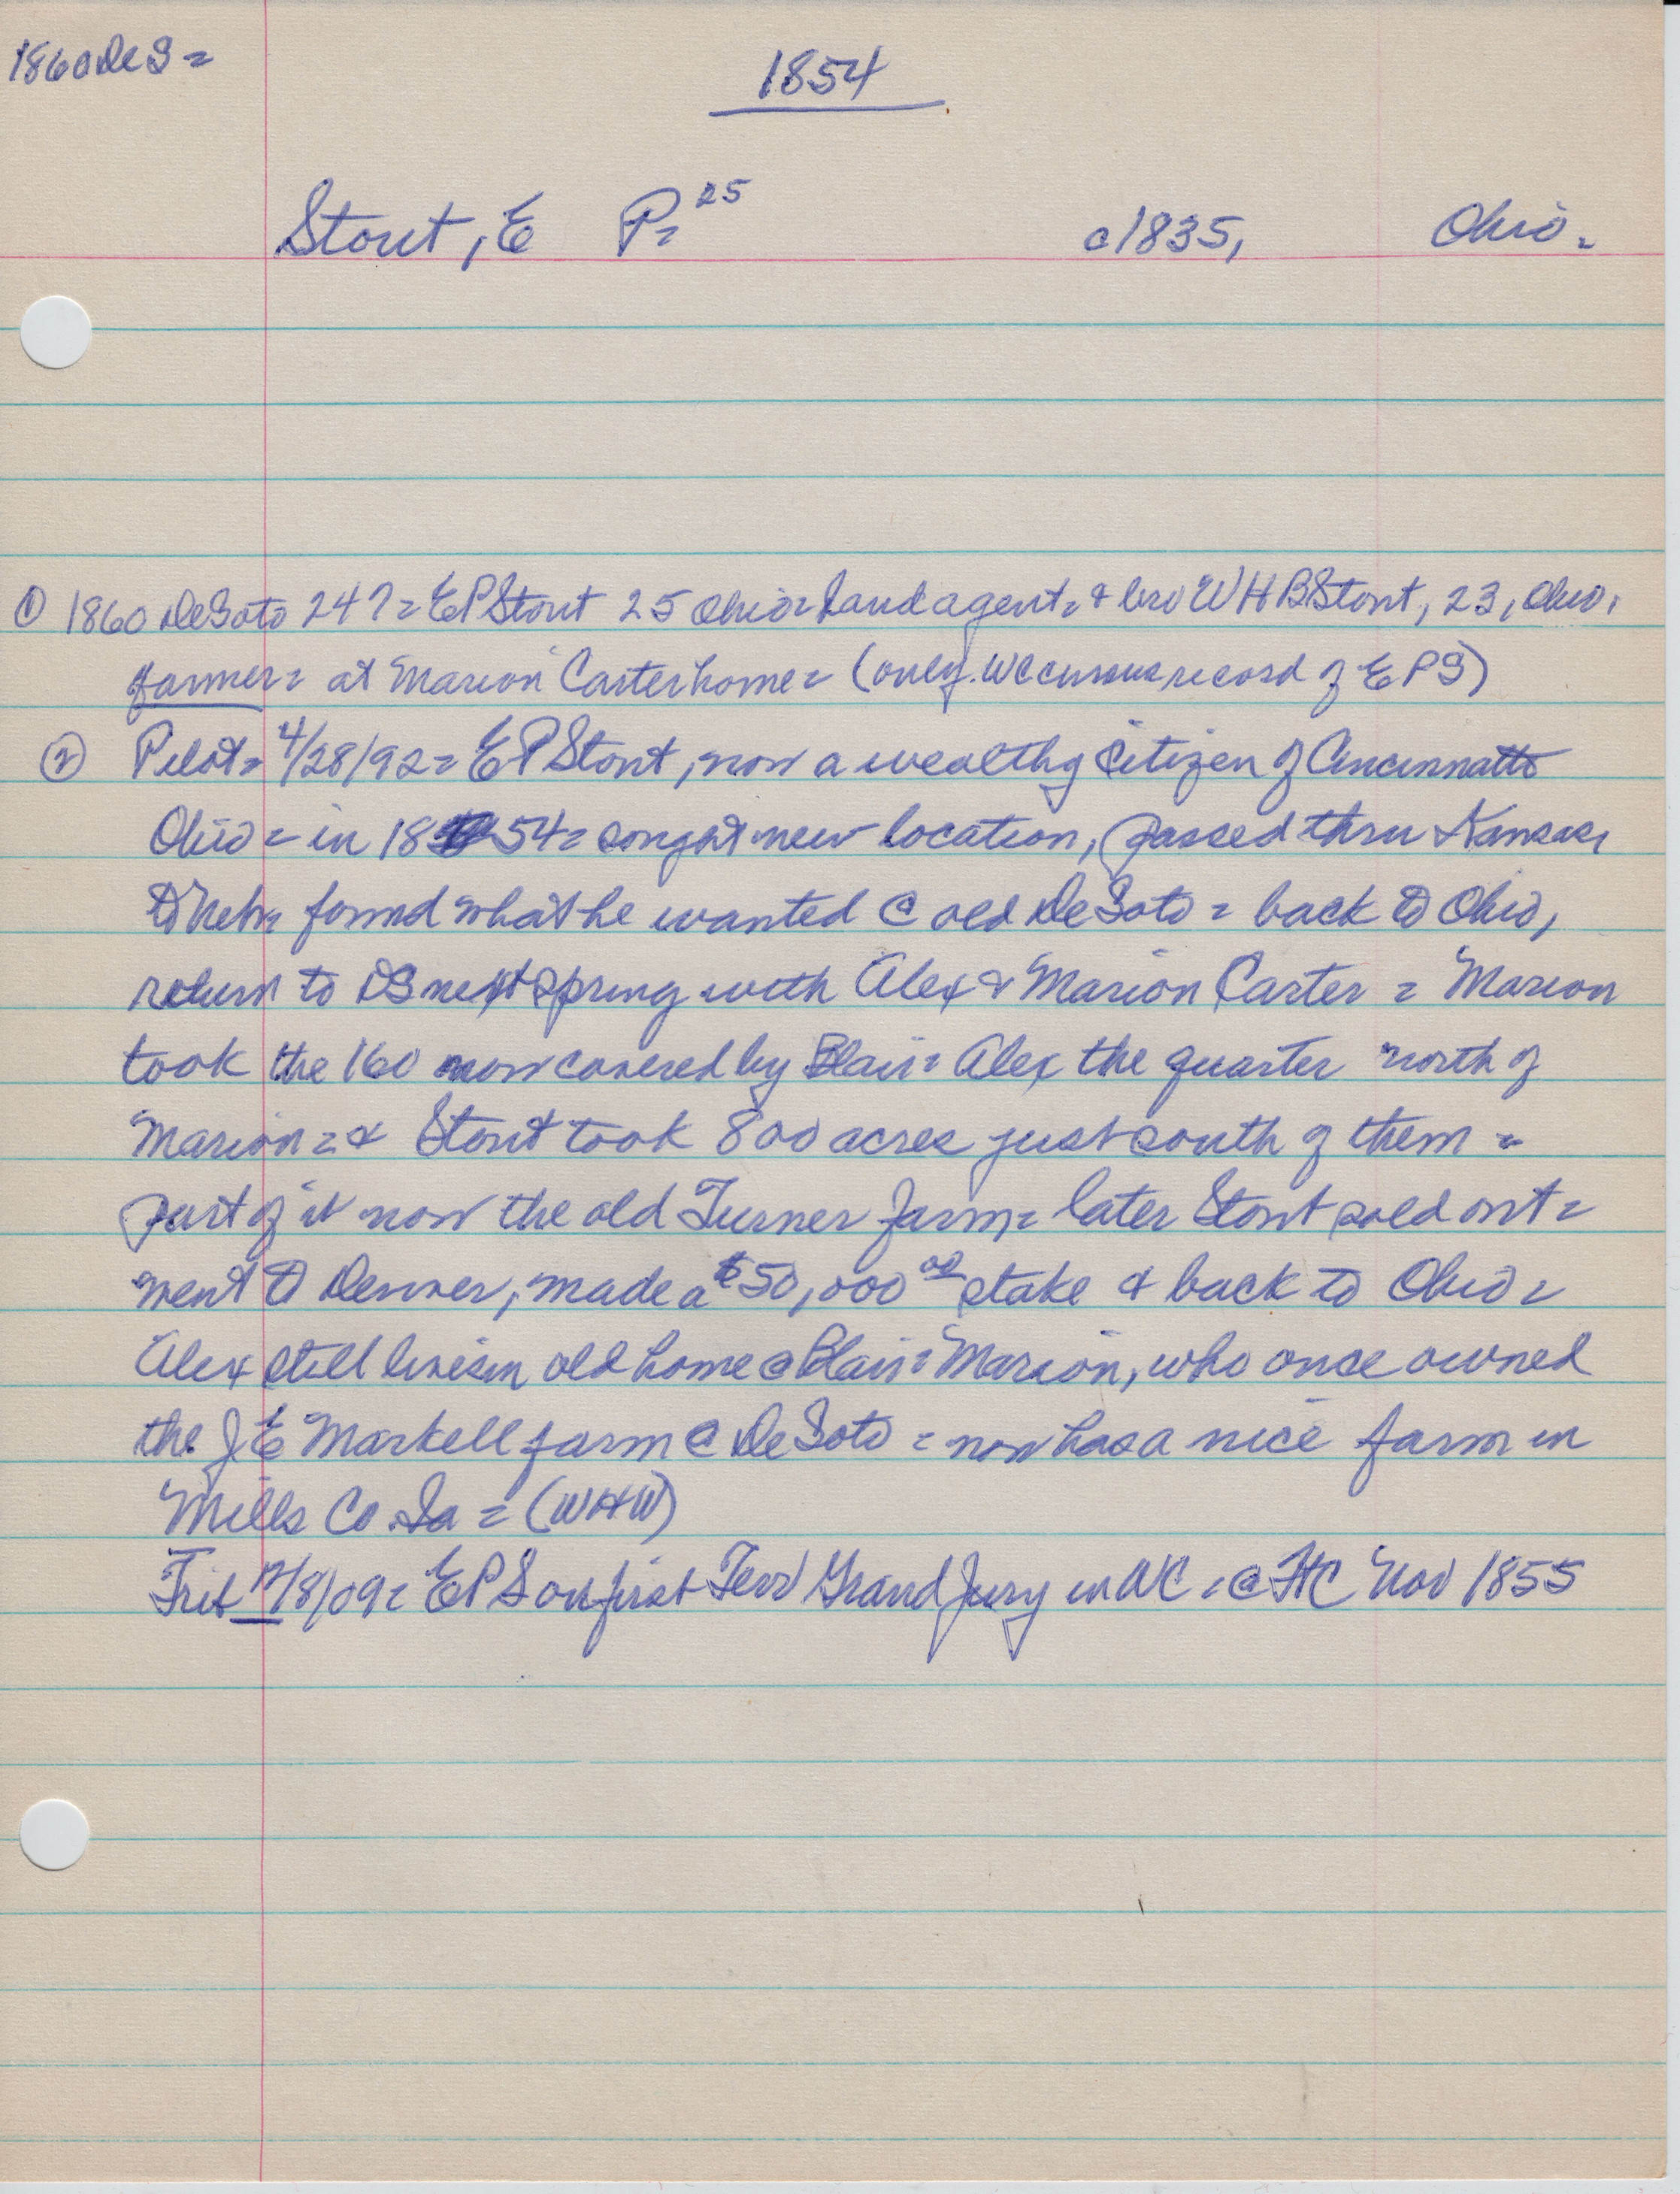 1860 DeS =
1854
Stout, E P = 25 c1835, Ohio.
① 1860 DeSoto 247 = EP Stout 25 Ohio = Land agent = & bro WHB Stout, 23, Ohio,
farmer = at Marion Carter home = (only WC census record of EPS)
② Pilot = 4/28/92 = EP Stout, now a wealthy citizen of Cincinnatti
Ohio = in 18 54 = sought new location, passed thru Kansas
to Neb = found what he wanted @ old DeSoto = back to Ohio,
return to DS next spring with Alex & Marion Carter = Marion
took the 160 now covered by Blair = Alex the quarter north of
Marion = & Stout took 800 acres just south of them =
part of it now the old Turner farm = later Stout sold out =
went to Denver, made a $50,000 00 stake & back to Ohio =
Alex still lives in old home @ Blair = Marion, who once owned
the J E Markell farm @ DeSoto = now has a nice farm in
Mills Co. Ia = (WHW)
Trib 12/8/09 = EPS on first Terr Grand Jury in WC = @ FtC Nov 1855